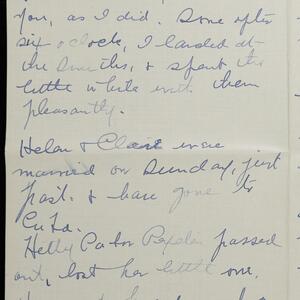 you, as I did. Some after
six o'clock, I landed at
the Smiths, & spent the
little while with them
pleasantly.
Helen & Claire were
married on Sunday, just
past. & have gone to
Cuba.
Hetty passed
out, lost her little one.